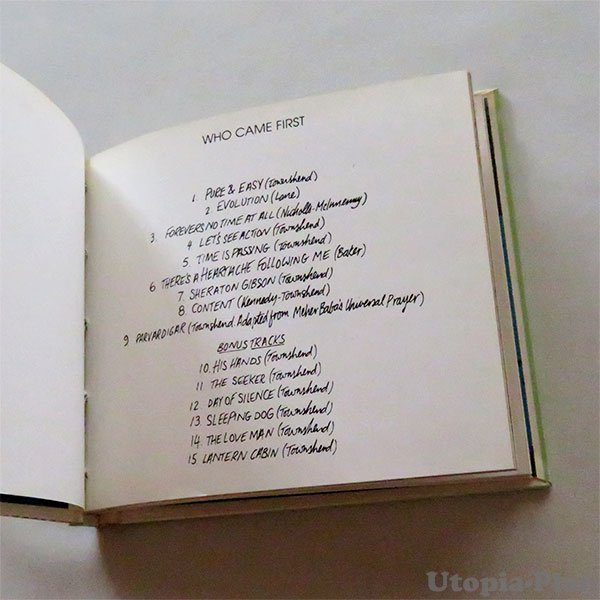 WHO CAME FIRST
1. PURE & EASY (Townshend)
2. EVOLUTION (Lane)
3. FOREVERS NO TIME AT ALL (Nicholls-McInnerny)
4 LET'S SEE ACTION (Townshend)
5 TIME IS PASSING (Townshend)
6 THERE'S A HEARTACHE FOLLOWING ME (Baker)
7. SHERATON GIBSON (Townshend)
8 CONTENT (Kennedy-Townshend)
9 PARVARDIGAR (Townshend. Adapted from Meher Baba's Universal Prayer)
BONUS TRACKS
10. HIS HANDS (Townshend)
11 THE SEEKER (Townshend)
12 DAY OF SILENCE (Townshend)
13 SLEEPING DOG (Townshend)
14. THE LOVE MAN (Townshend)
15 LANTERN CABIN (Townshend)
Utopia